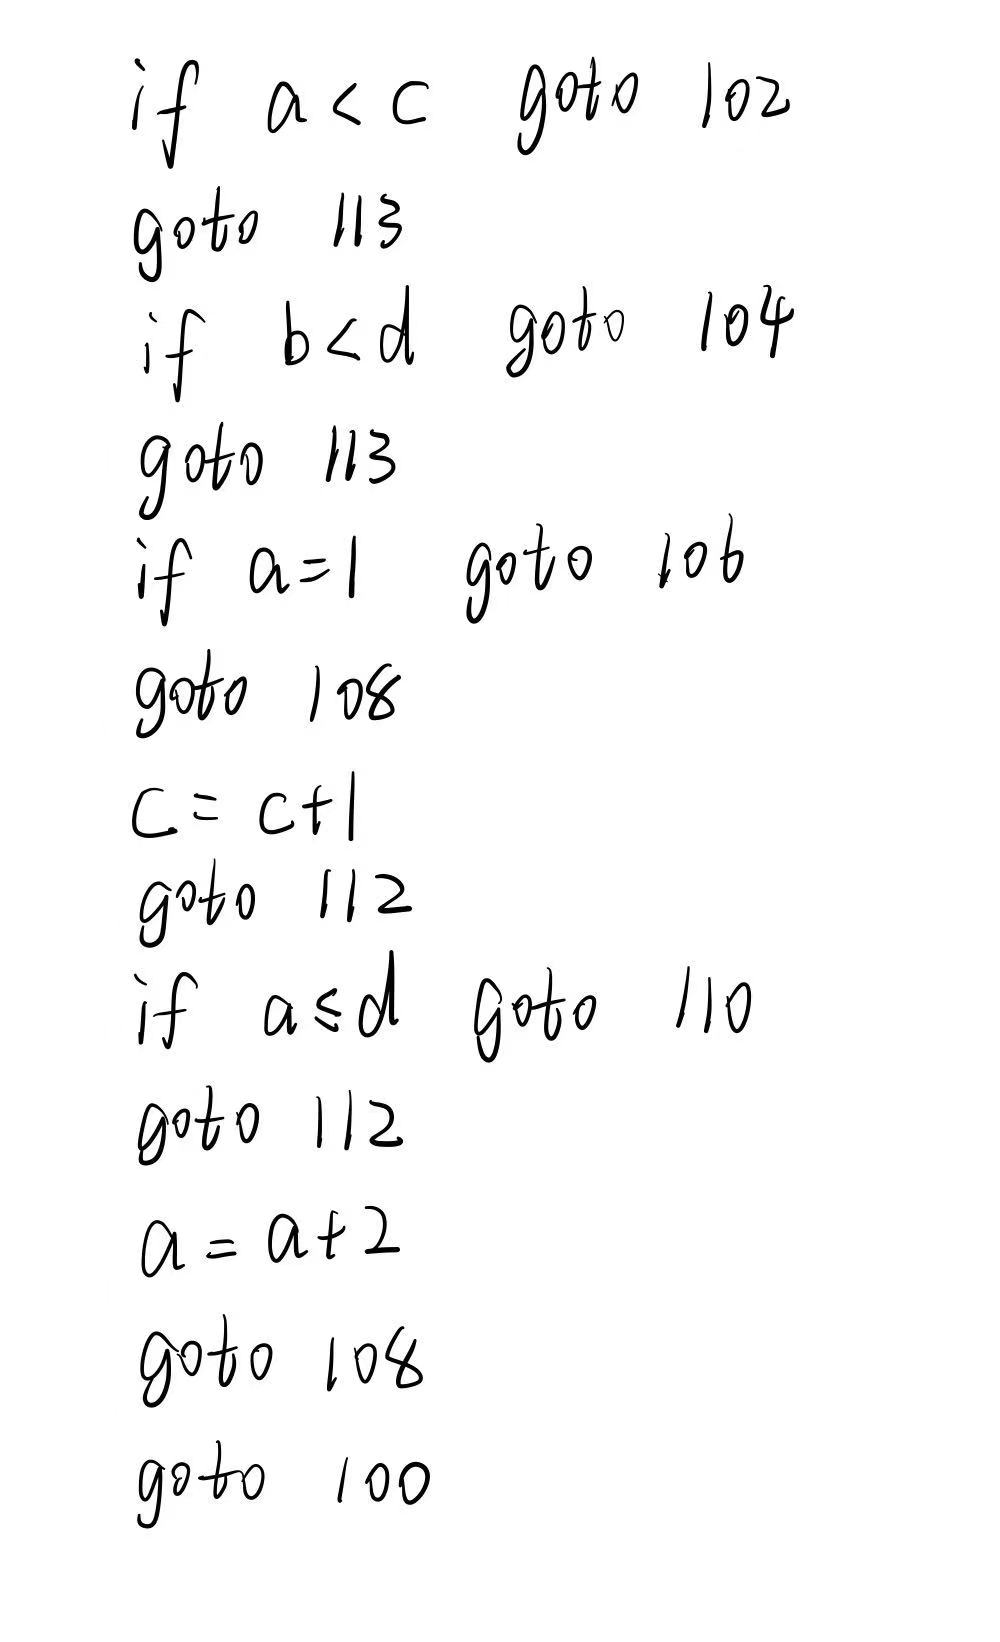 if a < c goto 102
goto 113
if b < d goto 104
goto 113
if a = 1 goto 106
goto 108
c = c+1
goto 112
if a ≤ d goto 110
goto 112
a = a+2
goto 108
goto 100